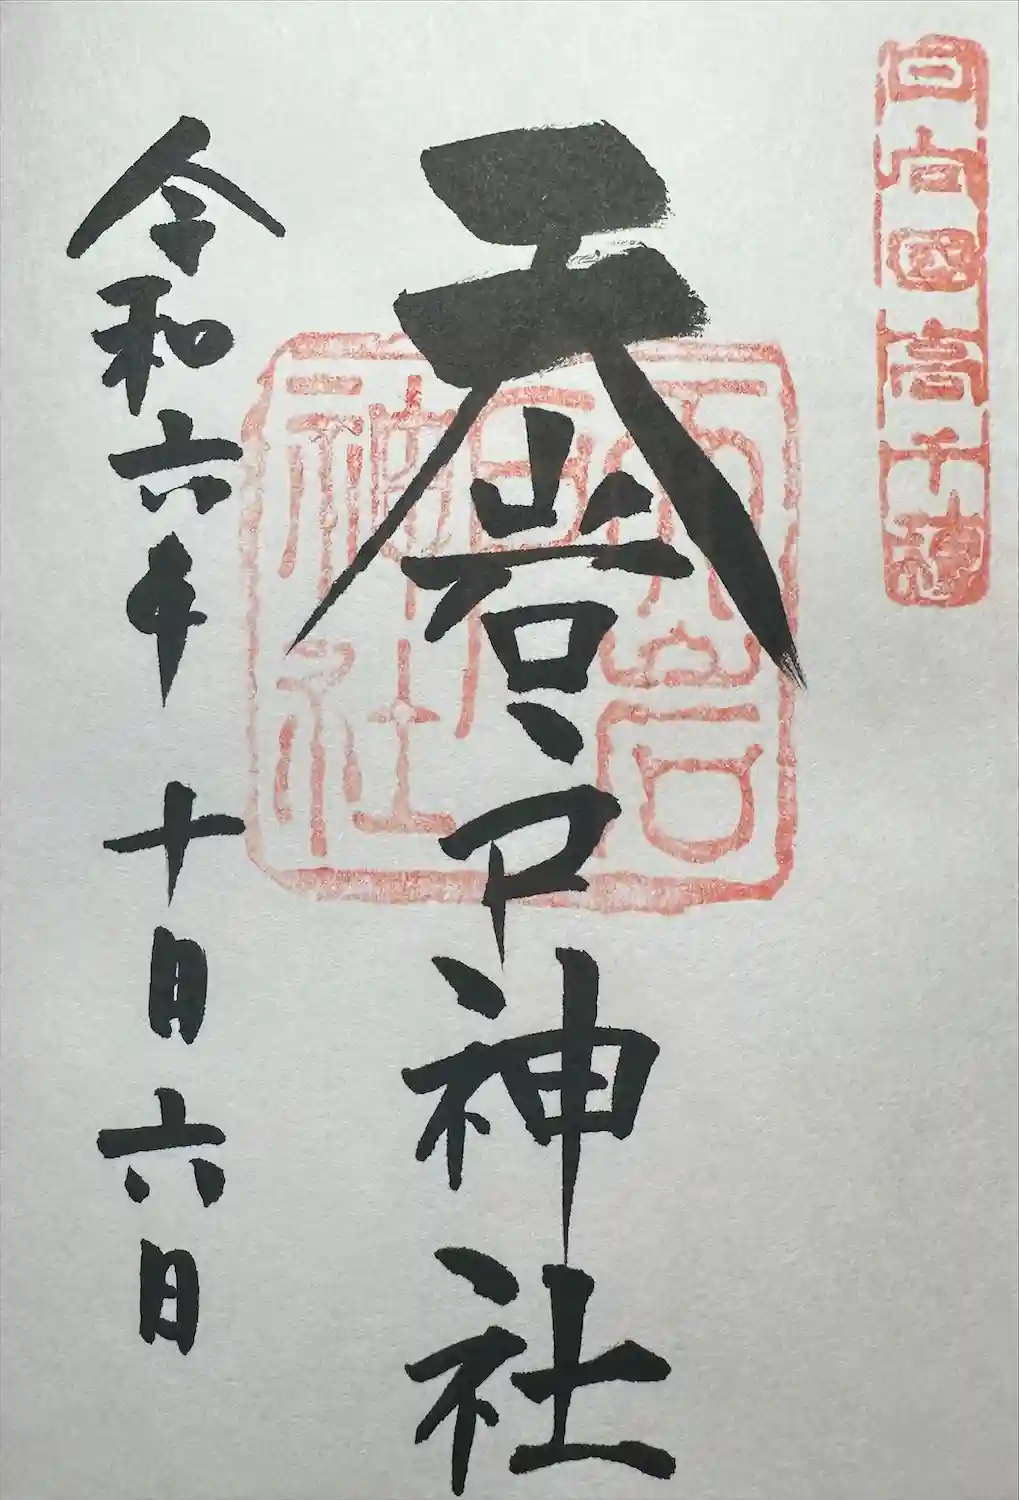 日向国高千穂
天岩戸神社
天岩戸神社
令和六年 十月六日